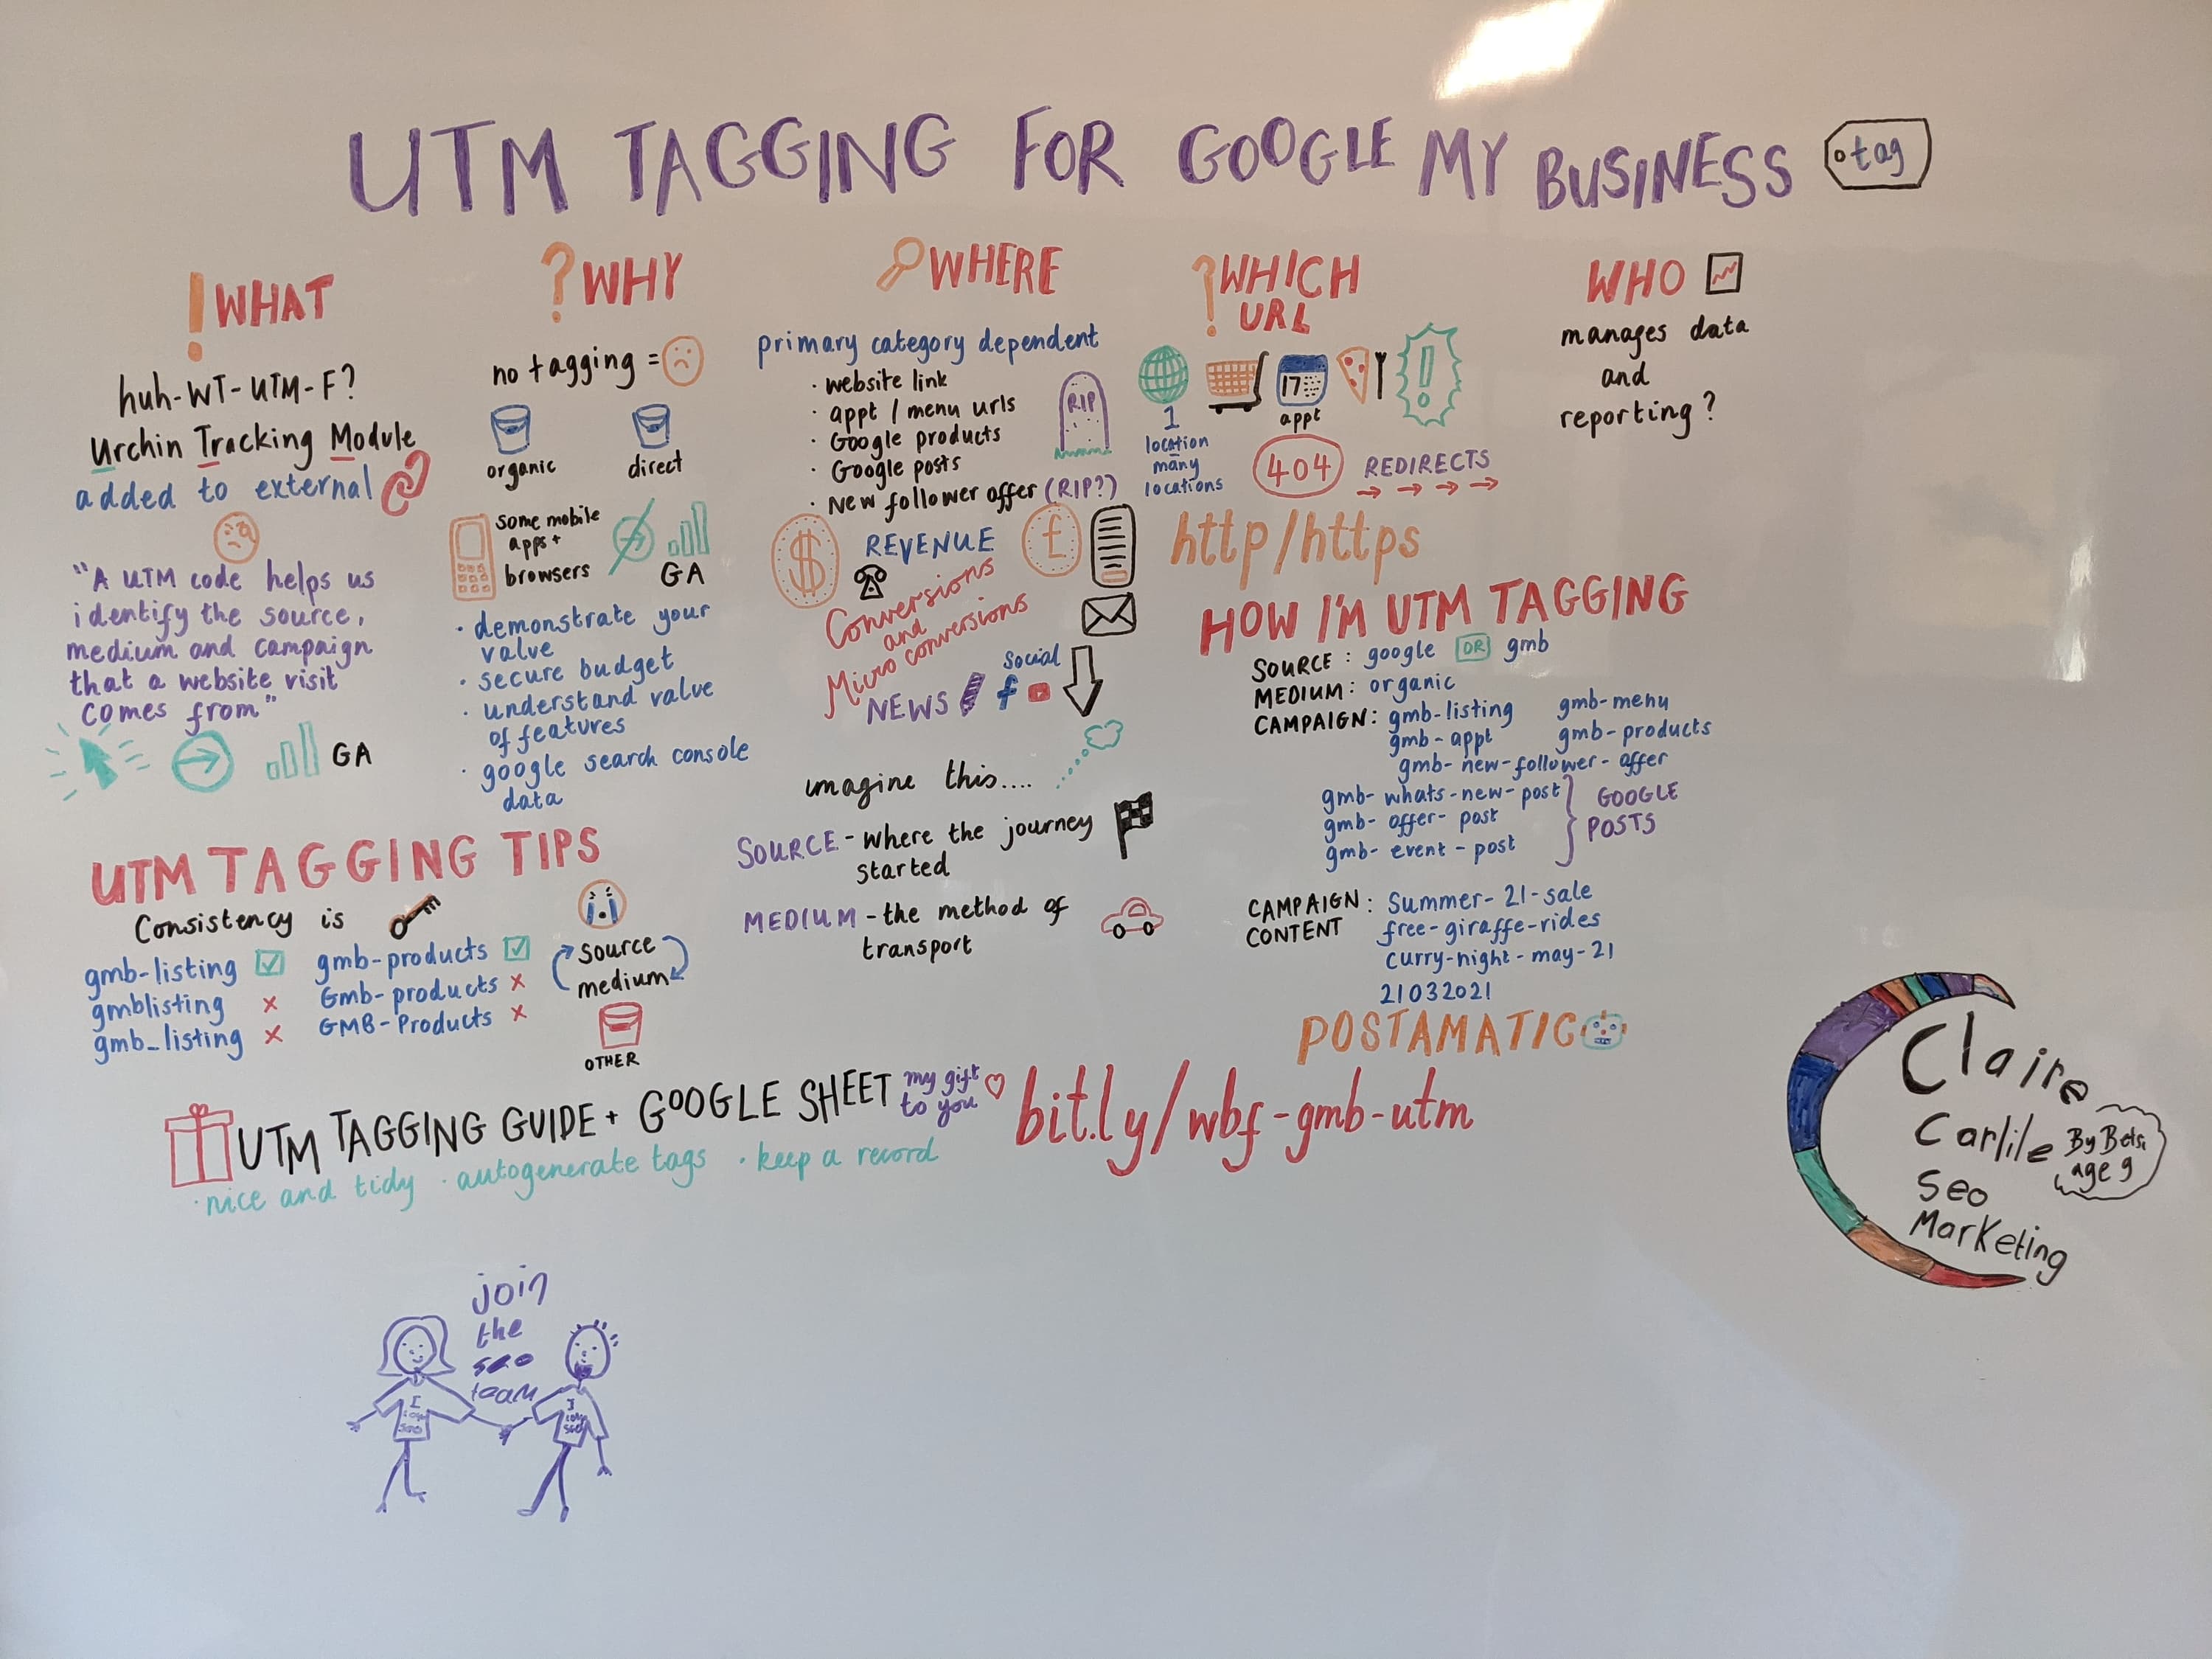 UTM TAGGING FOR GOOGLE MY BUSINESS
tag
! WHAT
huh-WT-UTM-F?
Urchin Tracking Module
added to external
"A UTM code helps us
identify the source,
medium and campaign
that a website visit
comes from"
GA
? WHY
no tagging =
organic
direct
some mobile
apps +
browsers
GA
· demonstrate your
value
· secure budget
· understand value
of features
· google search console
data
WHERE
primary category dependent
· website link
· appt / menu urls
· Google products
· Google posts
· New follower offer (RIP?)
RIP
$ REVENUE £
Conversions
and
Micro conversions
NEWS
Social
f
imagine this....
SOURCE - where the journey
started
MEDIUM - the method of
transport
? WHICH
URL
17
appt
!
1
location
many
locations
404
REDIRECTS
http/https
WHO
manages data
and
reporting?
HOW I'M UTM TAGGING
SOURCE : google OR gmb
MEDIUM : organic
CAMPAIGN : gmb-listing gmb-menu
gmb-appt gmb-products
gmb-new-follower-offer
gmb-whats-new-post
gmb-offer-post
gmb-event-post
GOOGLE
POSTS
CAMPAIGN : Summer-21-sale
CONTENT free-giraffe-rides
curry-night-may-21
21032021
POSTAMATIC
UTM TAGGING TIPS
Consistency is
gmb-listing ☑ gmb-products ☑
gmblisting x Gmb-products x
gmb_listing x GMB-Products x
source
medium
OTHER
UTM TAGGING GUIDE + GOOGLE SHEET
my gift
to you
bit.ly/wbf-gmb-utm
· nice and tidy · autogenerate tags · keep a record
join
the
seo
team
I
love
seo
I
love
seo
Claire
Carlile
Seo
Marketing
By
age 9